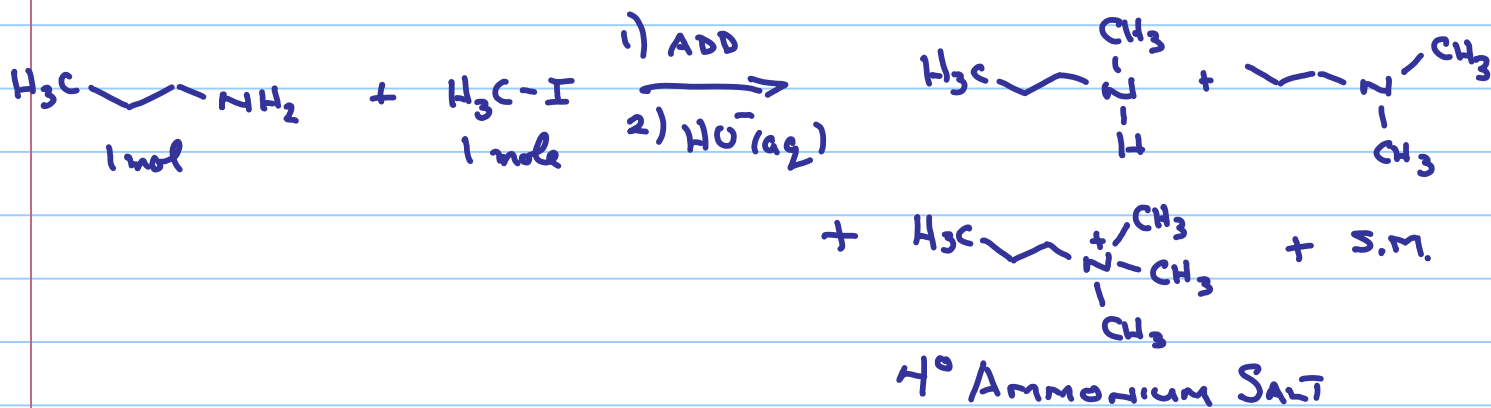 1) ADD
H₃C NH₂ + H₃C-I 2) HO⁻(aq) H₃C N CH₃ H + N CH₃ CH₃
1 mol 1 mole
+ H₃C N⁺ CH₃ CH₃ CH₃ + S.M.
4° AMMONIUM SALT